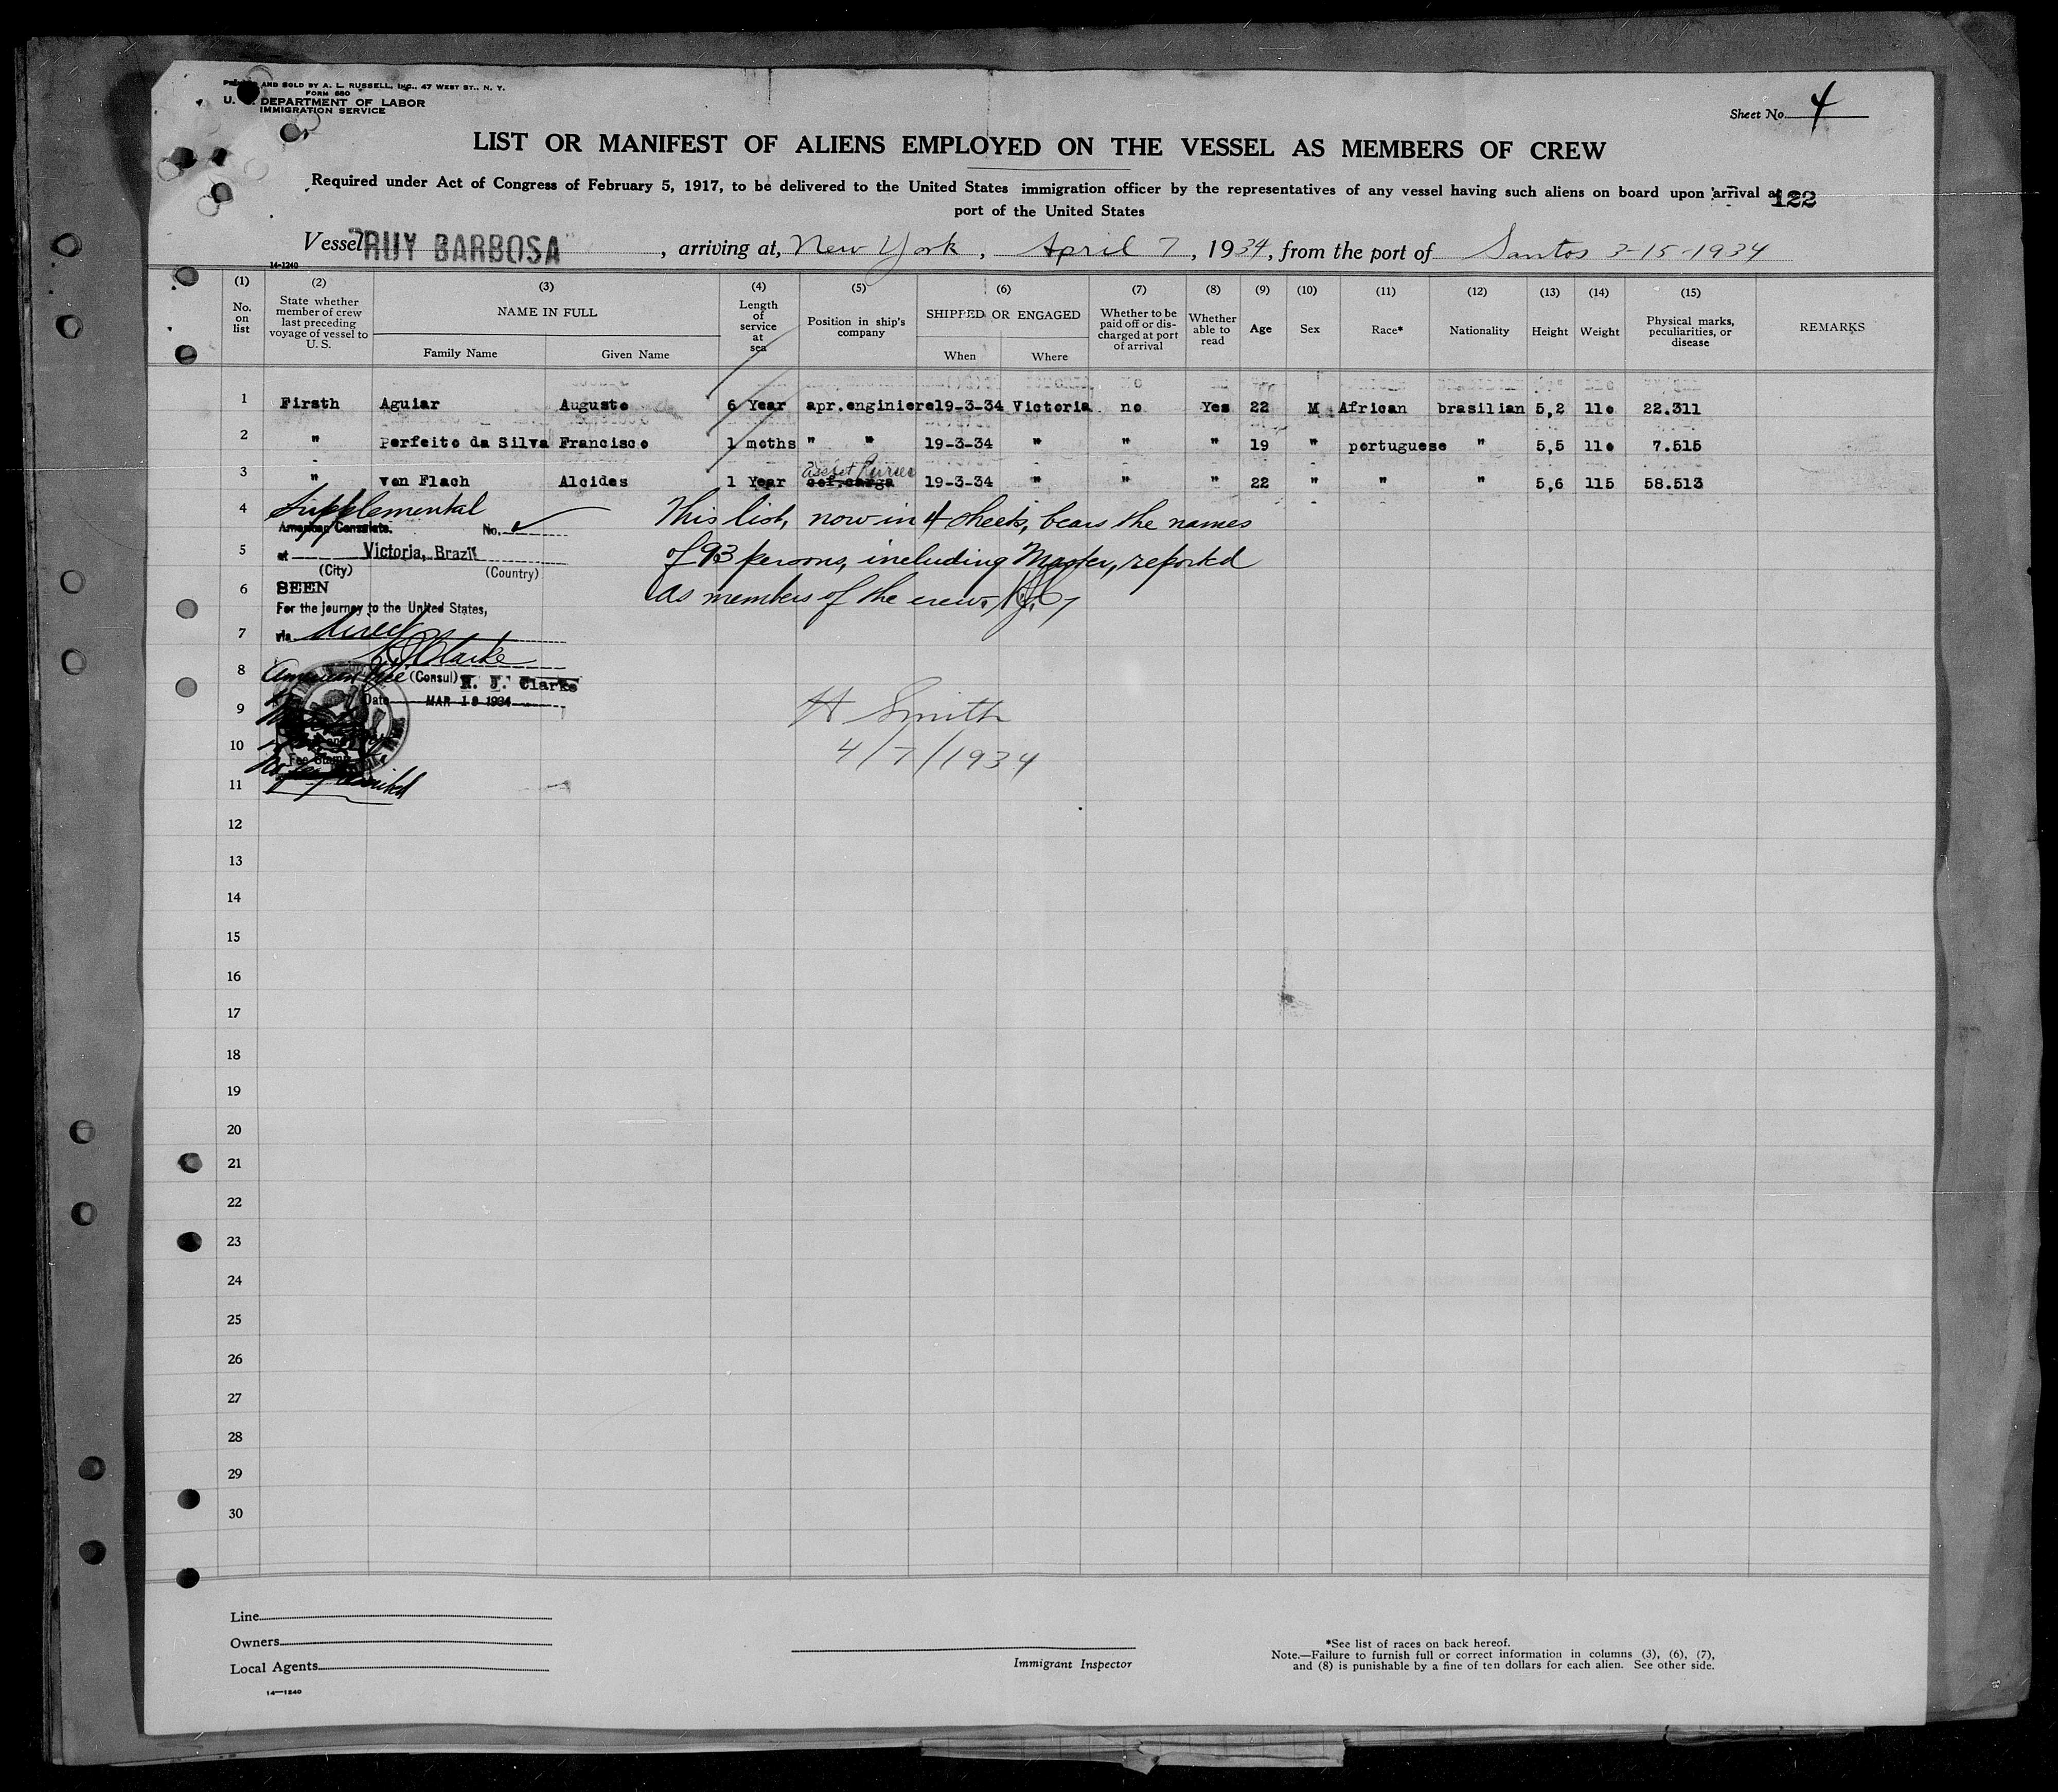 AND SOLD BY A. L. RUSSELL, INC., 47 WEST ST., N. Y.
FORM 680
U. DEPARTMENT OF LABOR
IMMIGRATION SERVICE
Sheet No. 4
LIST OR MANIFEST OF ALIENS EMPLOYED ON THE VESSEL AS MEMBERS OF CREW
Required under Act of Congress of February 5, 1917, to be delivered to the United States immigration officer by the representatives of any vessel having such aliens on board upon arrival a
122
port of the United States
Vessel "RUY BARBOSA", arriving at, New York, April 7, 1934, from the port of Santos 3-15-1934
14-1240
(1) (2) (3) (4) (5) (6) (7) (8) (9) (10) (11) (12) (13) (14) (15)
No. on list
State whether member of crew last preceding voyage of vessel to U. S.
NAME IN FULL
Family Name Given Name
Length of service at sea
Position in ship's company
SHIPPED OR ENGAGED
When Where
Whether to be paid off or discharged at port of arrival
Whether able to read
Age
Sex
Race*
Nationality
Height
Weight
Physical marks, peculiarities, or disease
REMARKS
1 Firsth Aguiar Augusto 6 Year apr.enginiere 19-3-34 Victoria no Yes 22 M African brasilian 5,2 110 22.311
2 " Perfeito da Silva Francisco 1 moths " " 19-3-34 " " " 19 " portuguese " 5,5 110 7.515
Asst Purser
3 " von Flach Alcides 1 Year cof.carga 19-3-34 " " " 22 " " " 5,6 115 58.513
4 Supplemental This list, now in 4 sheets, bears the names
American Consulate. No.
5 at Victoria, Brazil of 93 persons, including Master, reported
(City) (Country)
6 SEEN as members of the crew.
For the journey to the United States,
7 via direct
Clarke
8 American Vice (Consul) R. J. Clarke
Date MAR 19 1934
9 H Smith
10 4/7/1934
Fee Stamp
11
12
13
14
15
16
17
18
19
20
21
22
23
24
25
26
27
28
29
30
Line
Owners
Local Agents
Immigrant Inspector
*See list of races on back hereof.
Note.—Failure to furnish full or correct information in columns (3), (6), (7),
and (8) is punishable by a fine of ten dollars for each alien. See other side.
14—1240